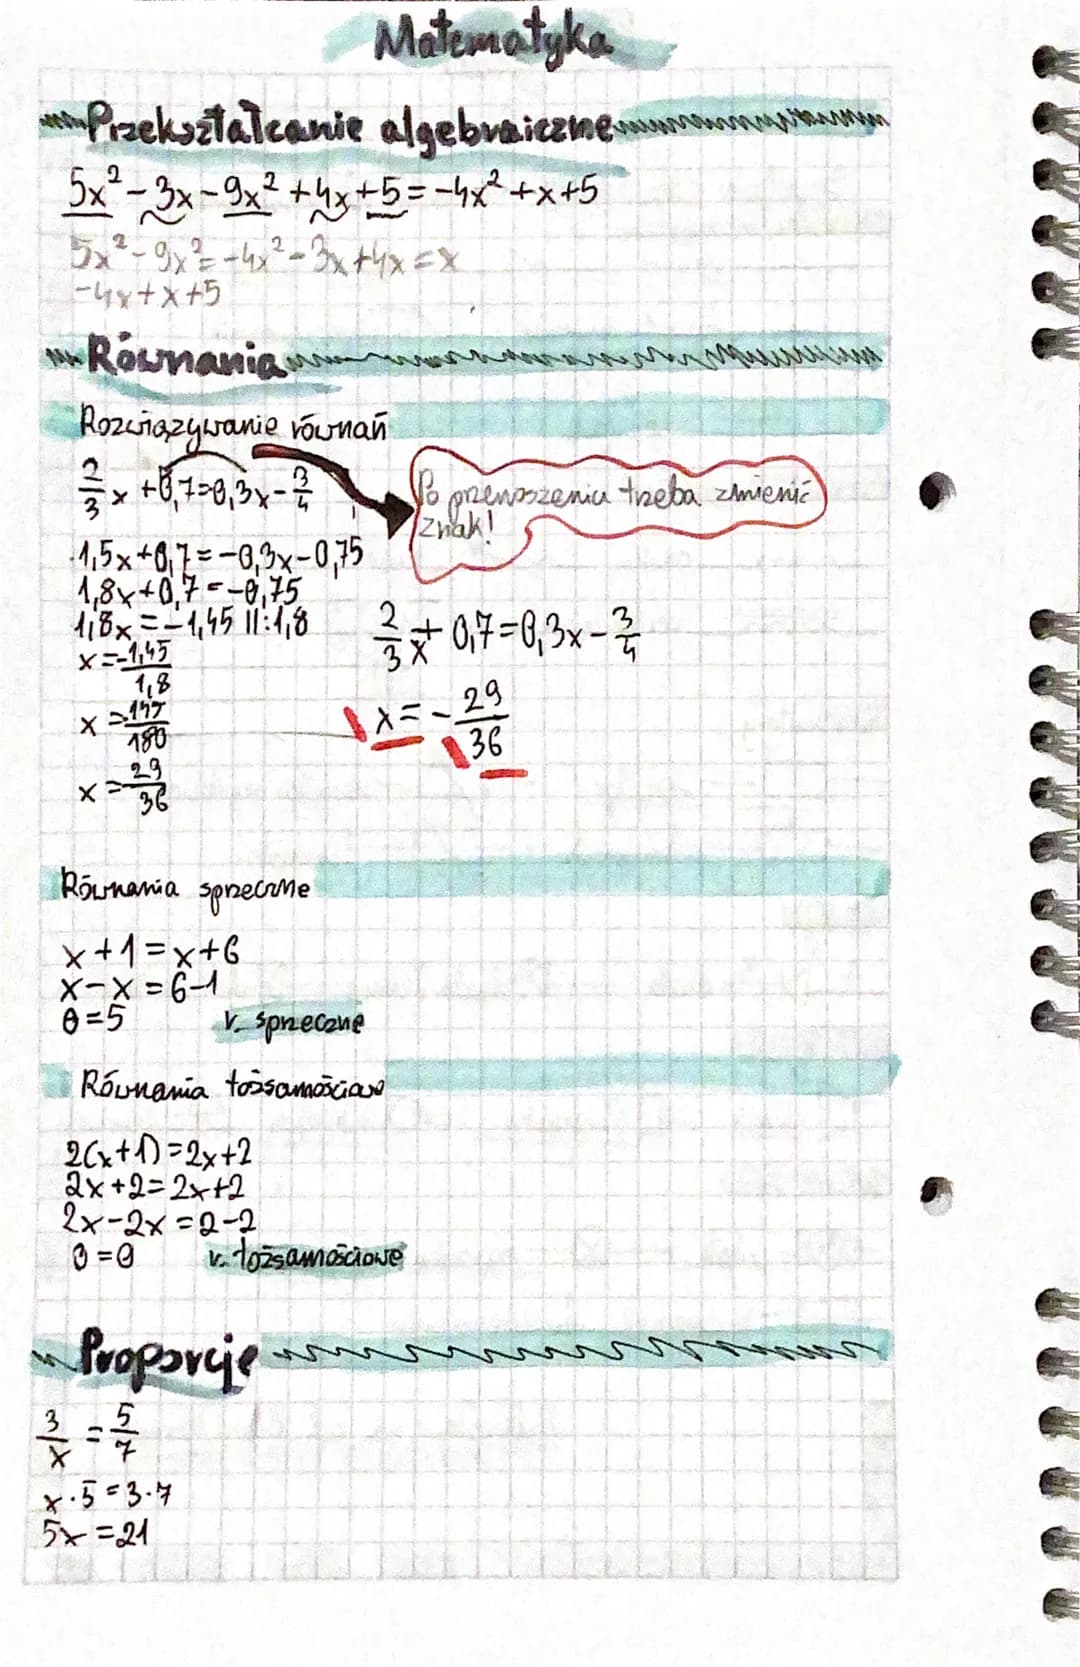 Matematyka
Przekształcanie algebraiczne
5x² - 3x - 9x² + 4x + 5 = -4x² + x + 5
5x² - 9x² = -4x² - 3x + 4x = x
-4x + x + 5
Równania
Rozwiązywanie równań
2/3 x + 0,7 = 0,3x - 3/4
Po przenoszeniu trzeba zmienić
znak!
1,5x + 0,7 = -0,3x - 0,75
1,8x + 0,7 = -0,75
1,8x = -1,45 ||:1,8
x = -1,45/1,8
x = -145/180
x = -29/36
2/3 x + 0,7 = 0,3x - 3/4
x = - 29/36
Równania sprzeczne
x + 1 = x + 6
x - x = 6 - 1
0 = 5 r. sprzeczne
Równania tożsamościowe
2(x+1) = 2x+2
2x + 2 = 2x + 2
2x - 2x = 2 - 2
0 = 0 r. tożsamościowe
Proporcje
3/x = 5/7
x · 5 = 3 · 7
5x = 21